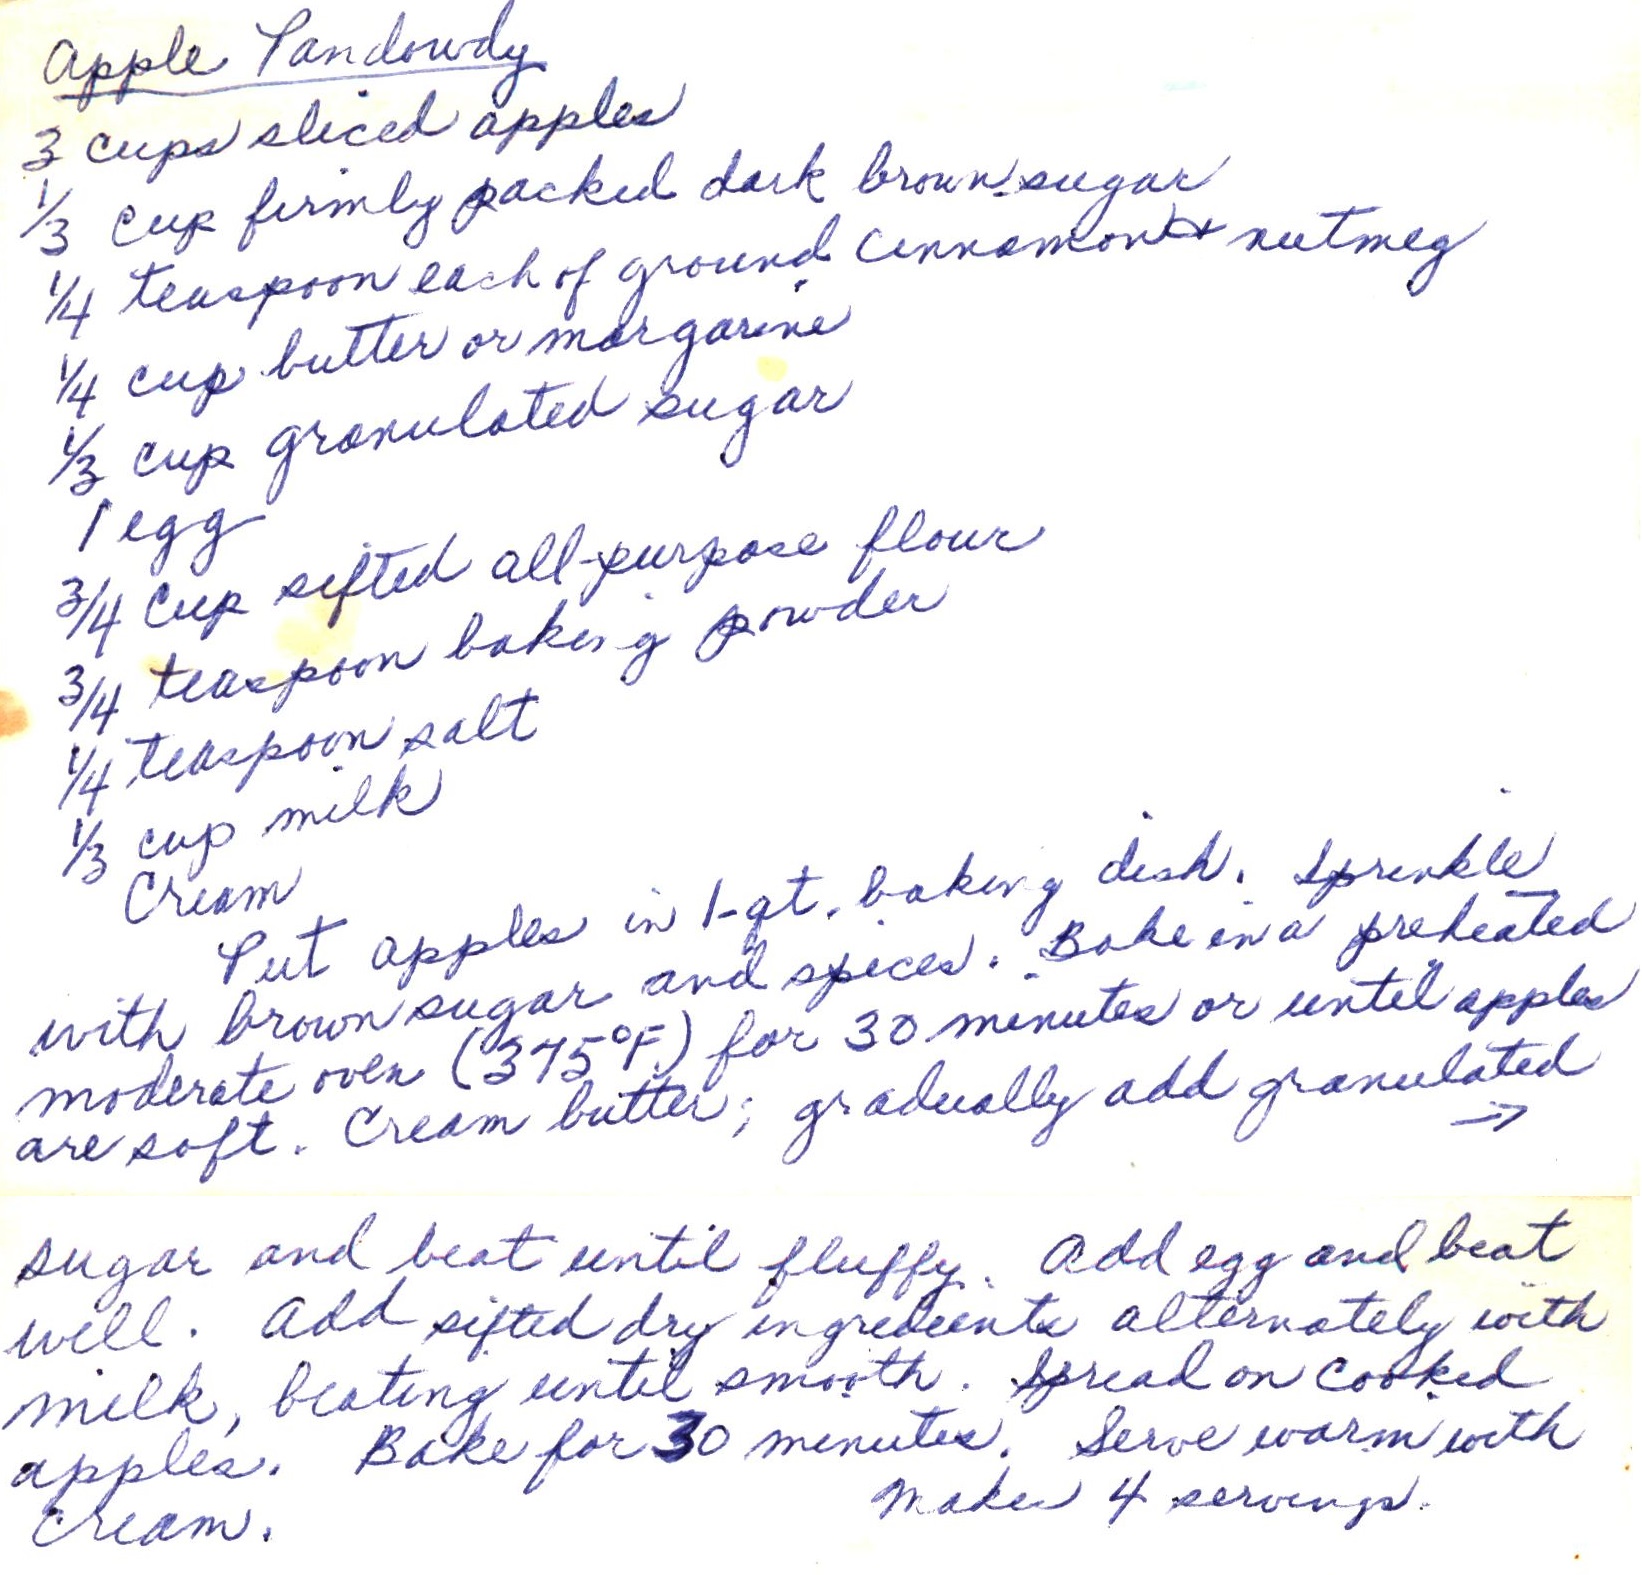 Apple Pandowdy
3 cups sliced apples
1/3 cup firmly packed dark brown sugar
1/4 teaspoon each of ground cinnamon & nutmeg
1/4 cup butter or margarine
1/3 cup granulated sugar
1 egg
3/4 cup sifted all-purpose flour
3/4 teaspoon baking powder
1/4 teaspoon salt
1/3 cup milk
Cream
Put apples in 1-qt. baking dish. Sprinkle
with brown sugar and spices. Bake in a preheated
moderate oven (375°F.) for 30 minutes or until apples
are soft. Cream butter; gradually add granulated
→
sugar and beat until fluffy. Add egg and beat
well. Add sifted dry ingredients alternately with
milk, beating until smooth. Spread on cooked
apples. Bake for 30 minutes. Serve warm with
cream. Makes 4 servings.